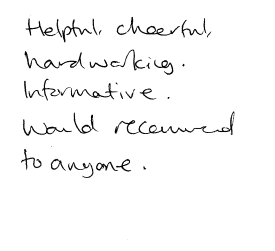 Helpful, cheerful,
hardworking.
Informative.
Would recommend
to anyone.